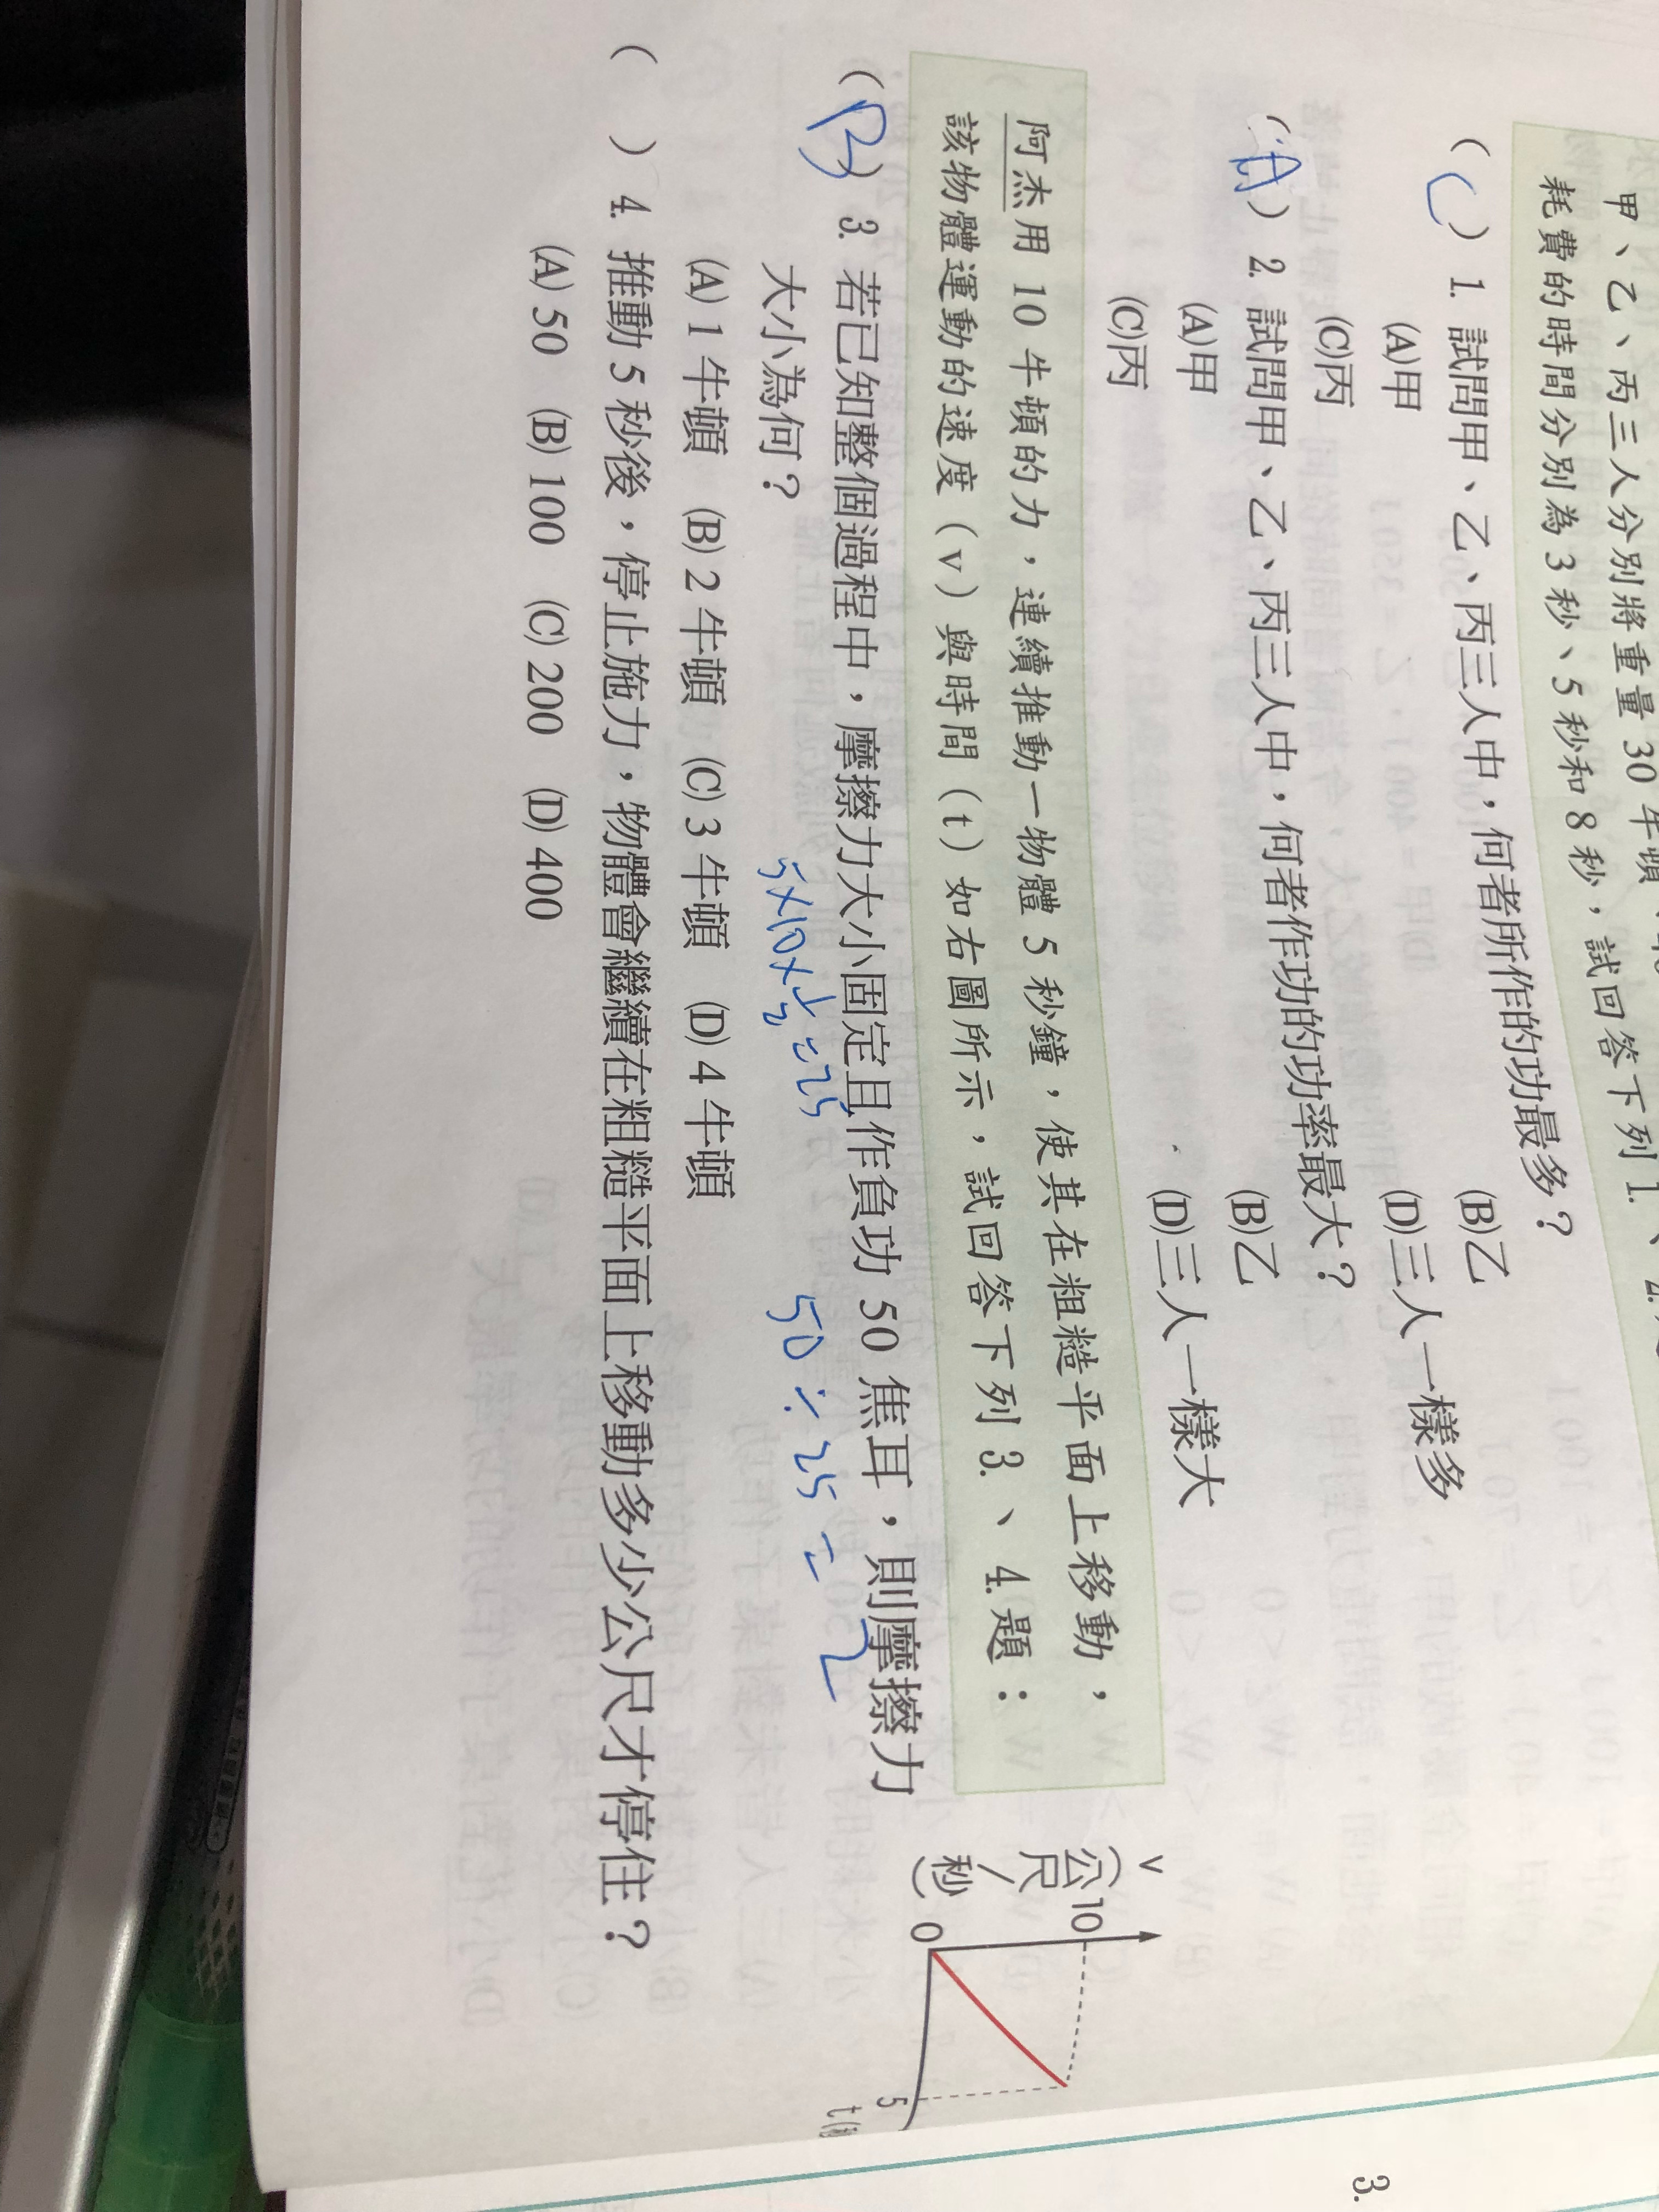 甲、乙、丙三人分別將重量 30 牛頓
耗費的時間分別為 3 秒、5 秒和 8 秒，試回答下列 1.、2.
(C) 1. 試問甲、乙、丙三人中，何者所作的功最多？
(A)甲 (B)乙
(C)丙 (D)三人一樣多
(A) 2. 試問甲、乙、丙三人中，何者作功的功率最大？
(A)甲 (B)乙
(C)丙 (D)三人一樣大
阿杰用 10 牛頓的力，連續推動一物體 5 秒鐘，使其在粗糙平面上移動，
該物體運動的速度（v）與時間（t）如右圖所示，試回答下列 3.、4.題：
(B) 3. 若已知整個過程中，摩擦力大小固定且作負功 50 焦耳，則摩擦力
大小為何？
5×10×1/2=25 50÷25=2
(A) 1 牛頓 (B) 2 牛頓 (C) 3 牛頓 (D) 4 牛頓
( ) 4. 推動 5 秒後，停止施力，物體會繼續在粗糙平面上移動多少公尺才停住？
(A) 50 (B) 100 (C) 200 (D) 400
v
(公尺/秒)
10
0
5
t
3.